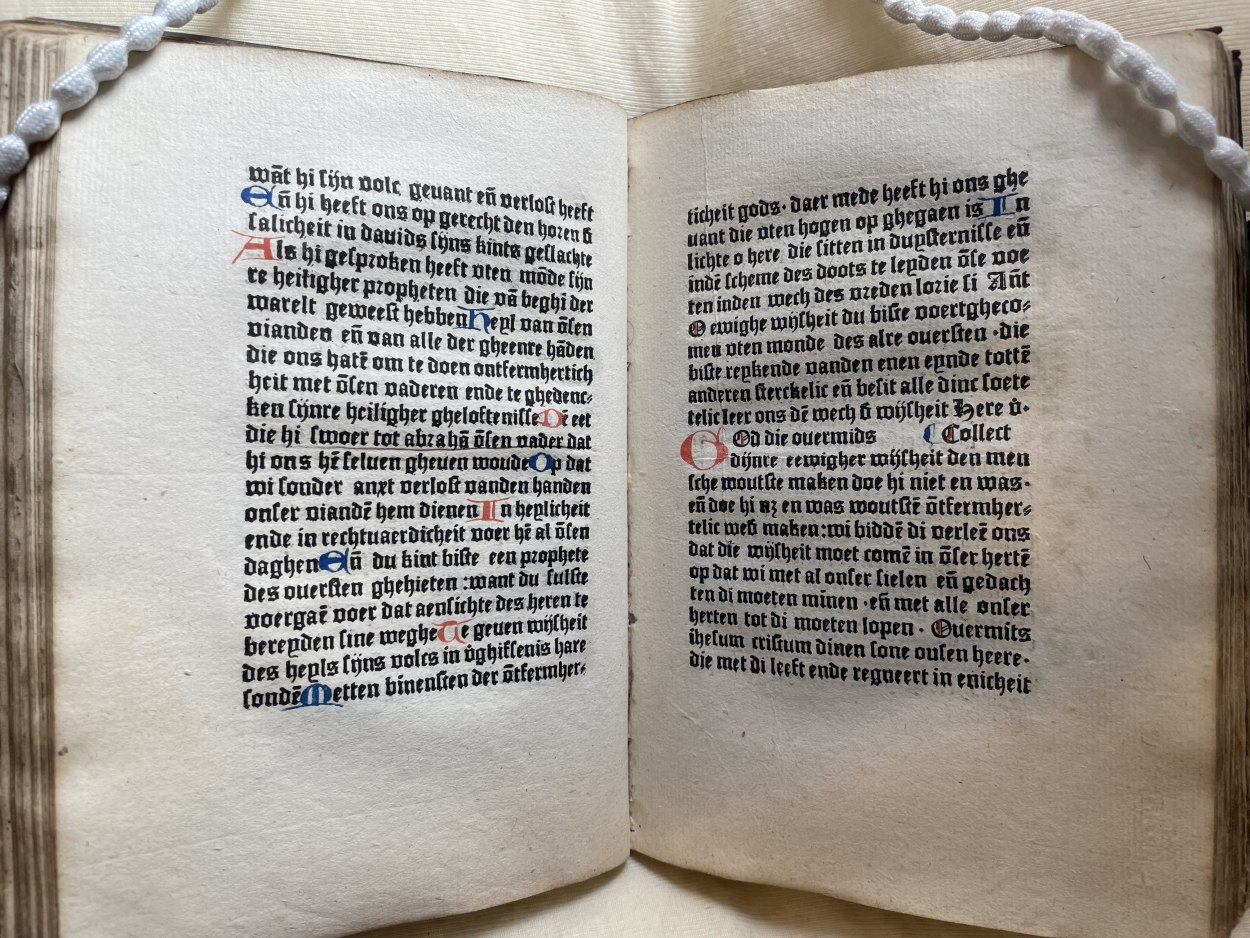 wāt hi sijn volc gevant eñ verlost heeft
Eñ hi heeft ons op gerecht den horen ð
salicheit in davids sijns kints geslachte
Als hi gesproken heeft vten mōde sijn
re heiligher propheten die vā beghī der
warelt geweest hebben Heyl van ōsen
vianden eñ van alle der gheenre hāden
die ons hatē om te doen ontfermhertich
heit met ōsen vaderen ende te ghedenc⸗
ken sijnre heiligher gheloftenisse Dē eet
die hi swoer tot abrahā ōsen vader dat
hi ons hē seluen gheuen woude Op dat
wi sonder anxt verlost vanden handen
onser viandē hem dienen In heylicheit
ende in rechtuaerdicheit voer hē al ōsen
daghen Eñ du kint biste een prophete
des ouersten ghehieten : want du sulste
voergaē voer dat aensichte des heren te
bereyden sine weghe Te geuen wijsheit
des heyls sijns volcs in v̄ghiffenis hare
sondē Metten binensten der ōtfermher⸗
ticheit gods· daer mede heeft hi ons ghe
uant die vten hogen op ghegaen is In
lichte o here die sitten in duysternisse eñ
indē scheme des doots te leyden ōse voe
ten inden wech des vreden lorie si Añt
O ewighe wijsheit du biste voertgheco⸗
men vten monde des alre ouersten · die
biste reykende vanden enen eynde tottē
anderen sterckelic eñ besit alle dinc soete
telic leer ons dē wech ð wijsheit Here v̄·
GOd die ouermids Collect
dijnre eewigher wijsheit den men
sche woutste maken doe hi niet en was·
eñ doe hi aꝫ en was woutstē ōtfermher⸗
telic weð maken: wi biddē di verleē ons
dat die wijsheit moet comē in ōser hertē
op dat wi met al onser sielen eñ gedach
ten di moeten minen · eñ met alle onser
herten tot di moeten lopen · Ouermits
ihesum cristum dinen sone onsen heere·
die met di leeft ende regneert in enicheit